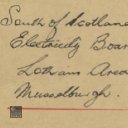 South of Scotland
Electricity Boar
Lothians Area
Musselburgh.